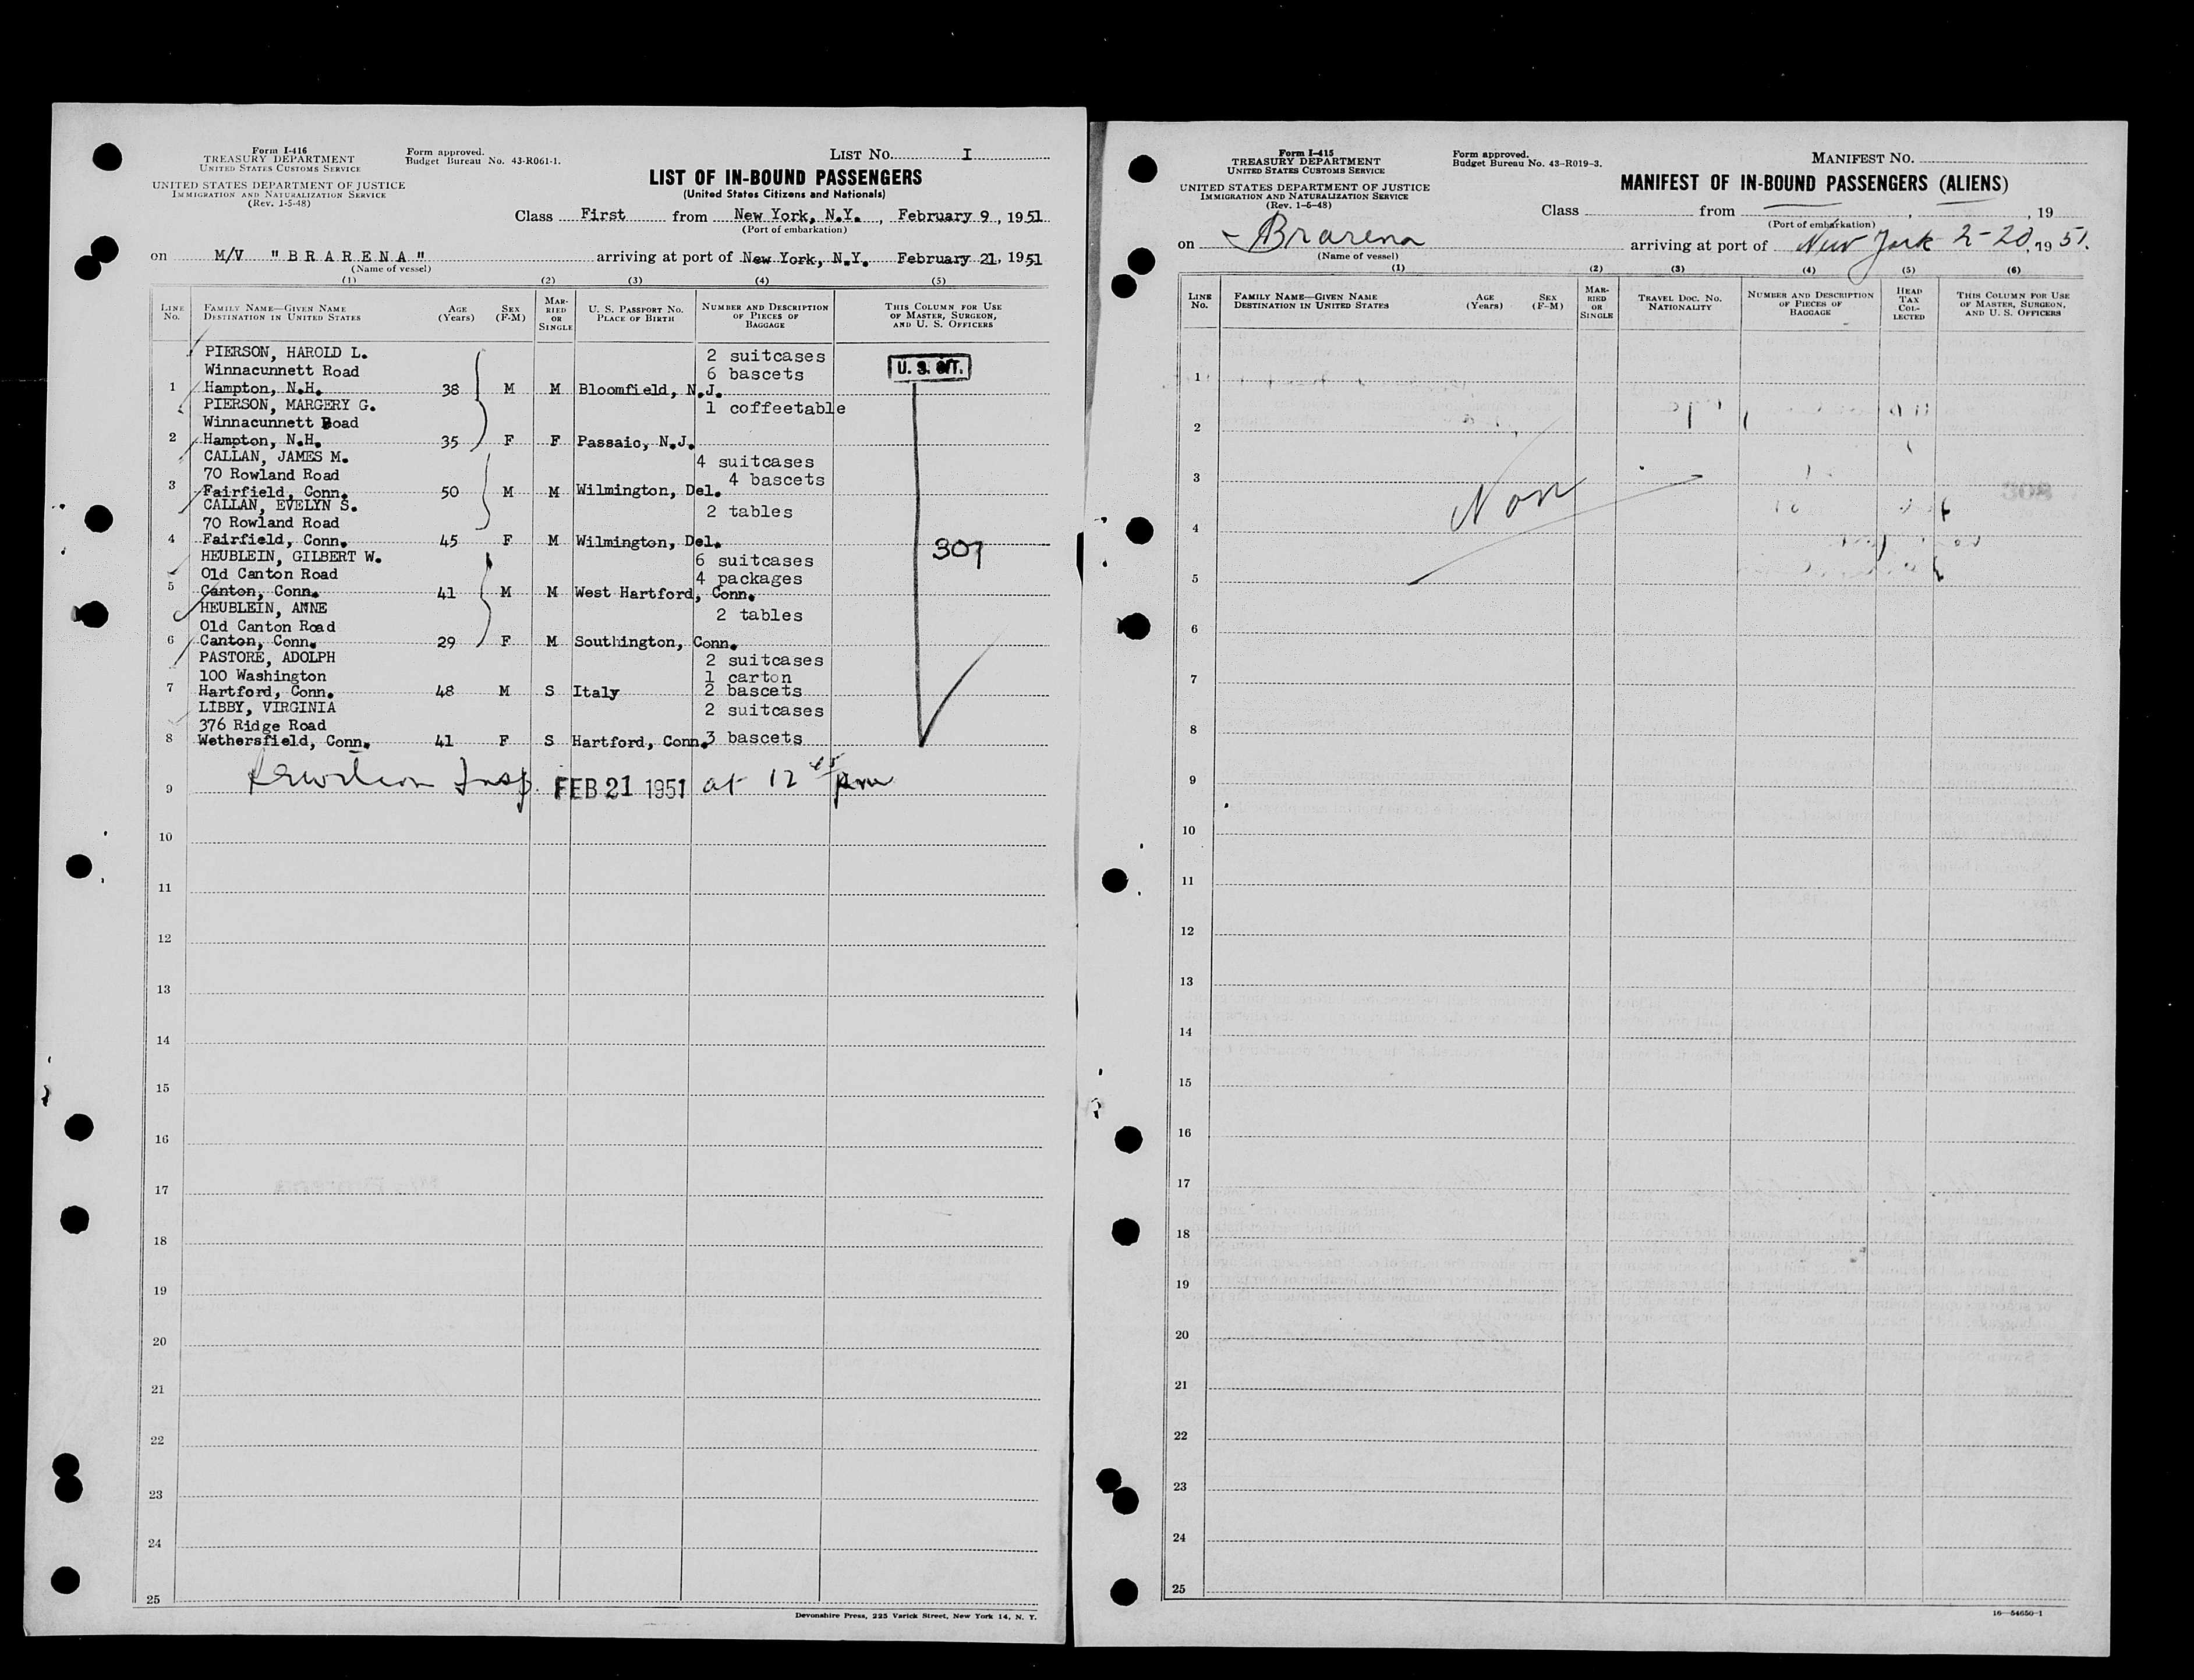 Form I-416
TREASURY DEPARTMENT
UNITED STATES CUSTOMS SERVICE
UNITED STATES DEPARTMENT OF JUSTICE
IMMIGRATION AND NATURALIZATION SERVICE
(Rev. 1-5-48)
Form approved.
Budget Bureau No. 43-R061-1.
LIST NO. I
LIST OF IN-BOUND PASSENGERS
(United States Citizens and Nationals)
Class First from New York, N.Y., February 9, 1951
(Port of embarkation)
on M/V "BRARENA" arriving at port of New York, N.Y. February 21, 1951
(Name of vessel)
(1) (2) (3) (4) (5)
LINE No. FAMILY NAME—GIVEN NAME DESTINATION IN UNITED STATES AGE (Years) SEX (F-M) MARRIED OR SINGLE U. S. PASSPORT NO. PLACE OF BIRTH NUMBER AND DESCRIPTION OF PIECES OF BAGGAGE THIS COLUMN FOR USE OF MASTER, SURGEON, AND U. S. OFFICERS
PIERSON, HAROLD L. 2 suitcases
Winnacunnett Road 6 bascets
1 Hampton, N.H. 38 M M Bloomfield, N.J.
PIERSON, MARGERY G. 1 coffeetable
Winnacunnett Road
2 Hampton, N.H. 35 F F Passaic, N.J.
CALLAN, JAMES M. 4 suitcases
70 Rowland Road 4 bascets
3 Fairfield, Conn. 50 M M Wilmington, Del.
CALLAN, EVELYN S. 2 tables
70 Rowland Road
4 Fairfield, Conn. 45 F M Wilmington, Del.
307
HEUBLEIN, GILBERT W. 6 suitcases
Old Canton Road 4 packages
5 Canton, Conn. 41 M M West Hartford, Conn.
HEUBLEIN, ANNE 2 tables
Old Canton Road
6 Canton, Conn. 29 F M Southington, Conn.
PASTORE, ADOLPH 2 suitcases
100 Washington 1 carton
7 Hartford, Conn. 48 M S Italy 2 bascets
LIBBY, VIRGINIA 2 suitcases
376 Ridge Road
8 Wethersfield, Conn. 41 F S Hartford, Conn. 3 bascets
9 Insp. FEB 21 1951 at 12 pm
10
11
12
13
14
15
16
17
18
19
20
21
22
23
24
25
Devonshire Press, 225 Varick Street, New York 14, N. Y.
Form I-415
TREASURY DEPARTMENT
UNITED STATES CUSTOMS SERVICE
UNITED STATES DEPARTMENT OF JUSTICE
IMMIGRATION AND NATURALIZATION SERVICE
(Rev. 1-6-48)
Form approved.
Budget Bureau No. 43-R019-3.
MANIFEST NO.
MANIFEST OF IN-BOUND PASSENGERS (ALIENS)
Class from , , 19
(Port of embarkation)
on Brarena arriving at port of New York 2-20, 1951.
(Name of vessel)
(1) (2) (3) (4) (5) (6)
LINE No. FAMILY NAME—GIVEN NAME DESTINATION IN UNITED STATES AGE (Years) SEX (F-M) MARRIED OR SINGLE TRAVEL DOC. NO. NATIONALITY NUMBER AND DESCRIPTION OF PIECES OF BAGGAGE HEAD TAX COLLECTED THIS COLUMN FOR USE OF MASTER, SURGEON, AND U. S. OFFICERS
1
2
3
Non
4
5
6
7
8
9
10
11
12
13
14
15
16
17
18
19
20
21
22
23
24
25
16—54650-1